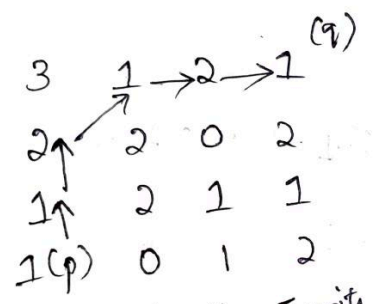 (q)
3 1 → 2 → 1
2 2 0 2
1 2 1 1
1(p) 0 1 2